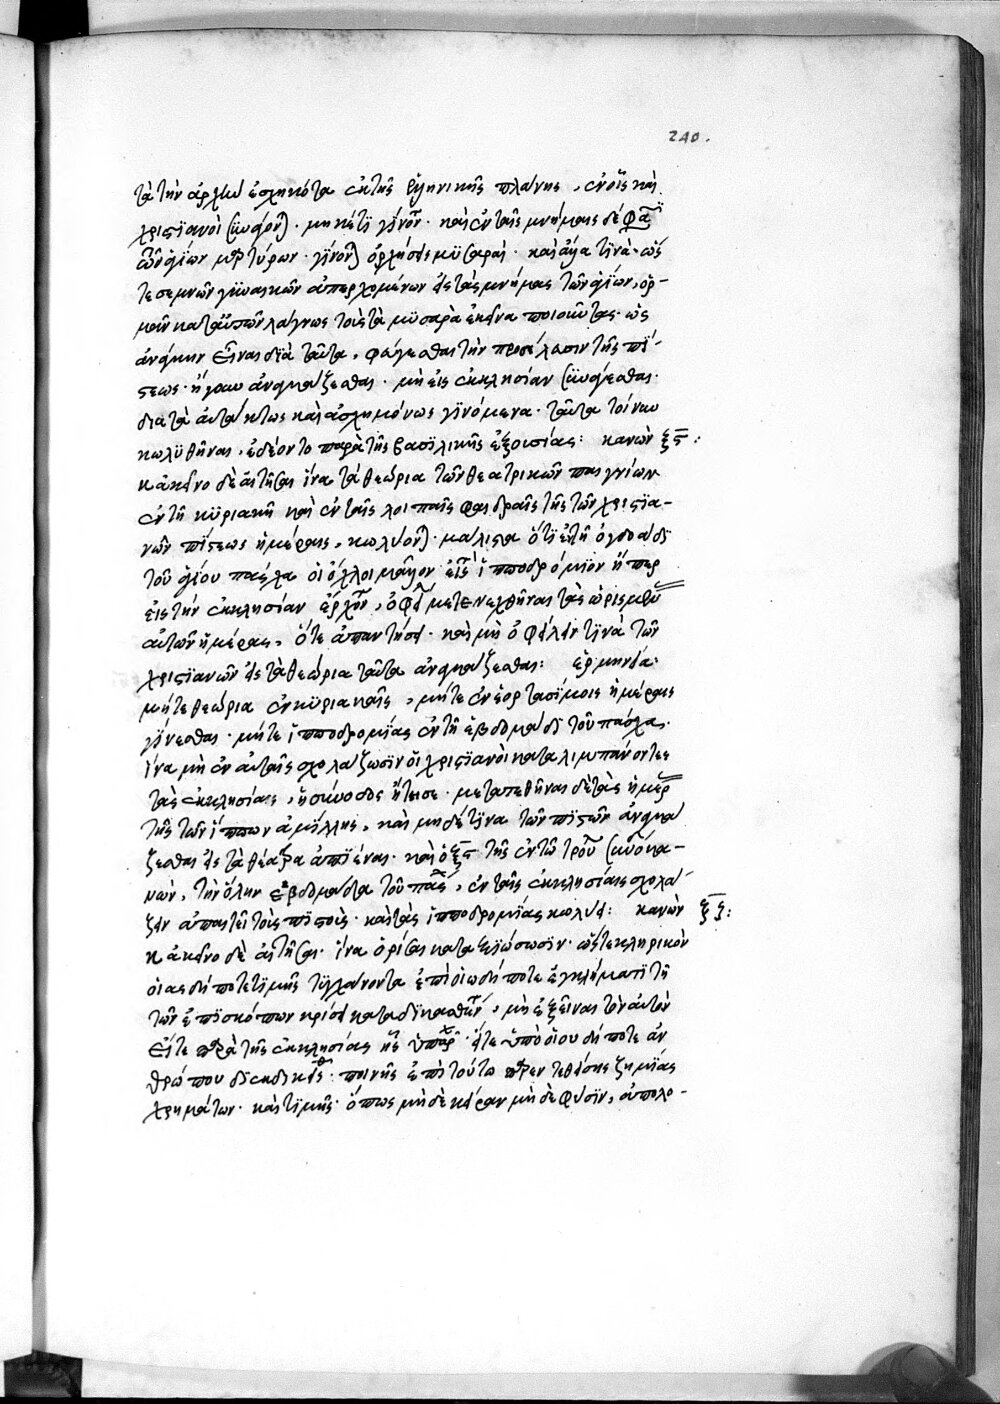 240.
τὰ τὴν ἀρχὴν ἐσχηκότα ἐκ τῆς ἑλληνικῆς πλάνης, ἐν οἷς καὶ
χριστιανοὶ συνάγον). μηκέτι γίνον. καὶ ἐν ταῖς μνήμαις δέ φα
τῶν ἁγίων μρτύρων. γίνον) ὀρχήσεις μυσαραί. καὶ ἅμα τινὰ. ὥς
τε σεμνῶν γυναικῶν ἀπερχομένων εἰς τὰς μνήμας τῶν ἁγίων, ὁρ-
μᾶν κατ' αὐτῶν λάγνως τοὺς τὰ μυσαρὰ ἐκεῖνα ποιοῦντας. ὡς
ἀνάγκην εἶναι διὰ ταῦτα, φεύγεσθαι τὴν προσέλασιν τῆς πί-
στεως. ἤγουν ἀναγκάζεσθαι. μὴ εἰς ἐκκλησίαν συνάγεσθαι.
διὰ τὰ ἀτάκτως καὶ ἀσχημόνως γινόμενα. ταῦτα τοίνυν
κωλυθῆναι, ἐδέοντο παρὰ τῆς βασιλικῆς ἐξουσίας: κανὼν ξς:
κἀκεῖνο δὲ αἰτῆσαι ἵνα τὰ θεώρια τῶν θεατρικῶν παιγνίων
ἐν τῇ κυριακῇ καὶ ἐν ταῖς λοιπαῖς φαιδραῖς τῆς τῶν χριστια-
νῶν πίστεως ἡμέραις, κωλύον). μάλιστα ὅτι ἐν τῇ ὀγδοάδι
τοῦ ἁγίου πάσχα οἱ ὄχλοι μᾶλλον εἰς τὸ ἱπποδρόμιον ἤπερ
εἰς τὴν ἐκκλησίαν ἔρχον, ὀφεί μετενεχθῆναι τὰς ὡρισμέν
αὐτῶν ἡμέρας, ὅτε ἀπαντήσῃ. καὶ μὴ ὀφείλειν τινὰ τῶν
χριστιανῶν εἰς τὰ θεώρια ταῦτα ἀναγκάζεσθαι: ἑρμηνεία:
μήτε θεώρια ἐν κυριακαῖς, μήτε ἐν ἑορτασίμοις ἡμέραις
γίνεσθαι. μήτε ἱπποδρομίας ἐν τῇ ἑβδομάδι τοῦ πάσχα.
ἵνα μὴ ἐν αὐταῖς σχολάζωσιν οἱ χριστιανοὶ καταλιμπάνοντες
τὰς ἐκκλησίας, ἡ σύνοδος ᾔτησε. μετατεθῆναι δὲ τὰς ἡμέρ
τῆς τῶν ἵππων ἁμίλλης, καὶ μηδέ τινα τῶν πιστῶν ἀναγκά
ζεσθαι εἰς τὰ θέατρα ἀπιέναι. καὶ ὁ ξς τῆς ἐν τῷ τρού συνό κα-
νών, τὴν ὅλην ἑβδομάδα τοῦ πάσ, ἐν ταῖς ἐκκλησίαις σχολά-
ζειν ἀπαιτεῖ τοὺς πιστοὺς. καὶ τὰς ἱπποδρομίας κωλύει: κανὼν ξζ:
κἀκεῖνο δὲ αἰτῆσαι. ἵνα ὁρίσαι καταξιώσωσιν. ὥστε κληρικὸν
οἱασδήποτε τιμῆς τυγχάνοντα ἐπὶ οἱῳδήποτε ἐγκλήματι τῇ
τῶν ἐπισκόπων κρίσει καταδικασθέν, μὴ ἐξεῖναι τὸν αὐτὸν
εἴτε πρὰ τῆς ἐκκλησίας ἧς ὑπῆρ. εἴτε ὑπὸ οἵου δήποτε ἀν
θρώπου διεκδικ. ποινῆς ἐπὶ τούτῳ πρεντεθείσης ζημίας
χρημάτων. καὶ τιμῆς. ὅπως μηδὲ κύραν μηδὲ φύσιν, ἀπολο-